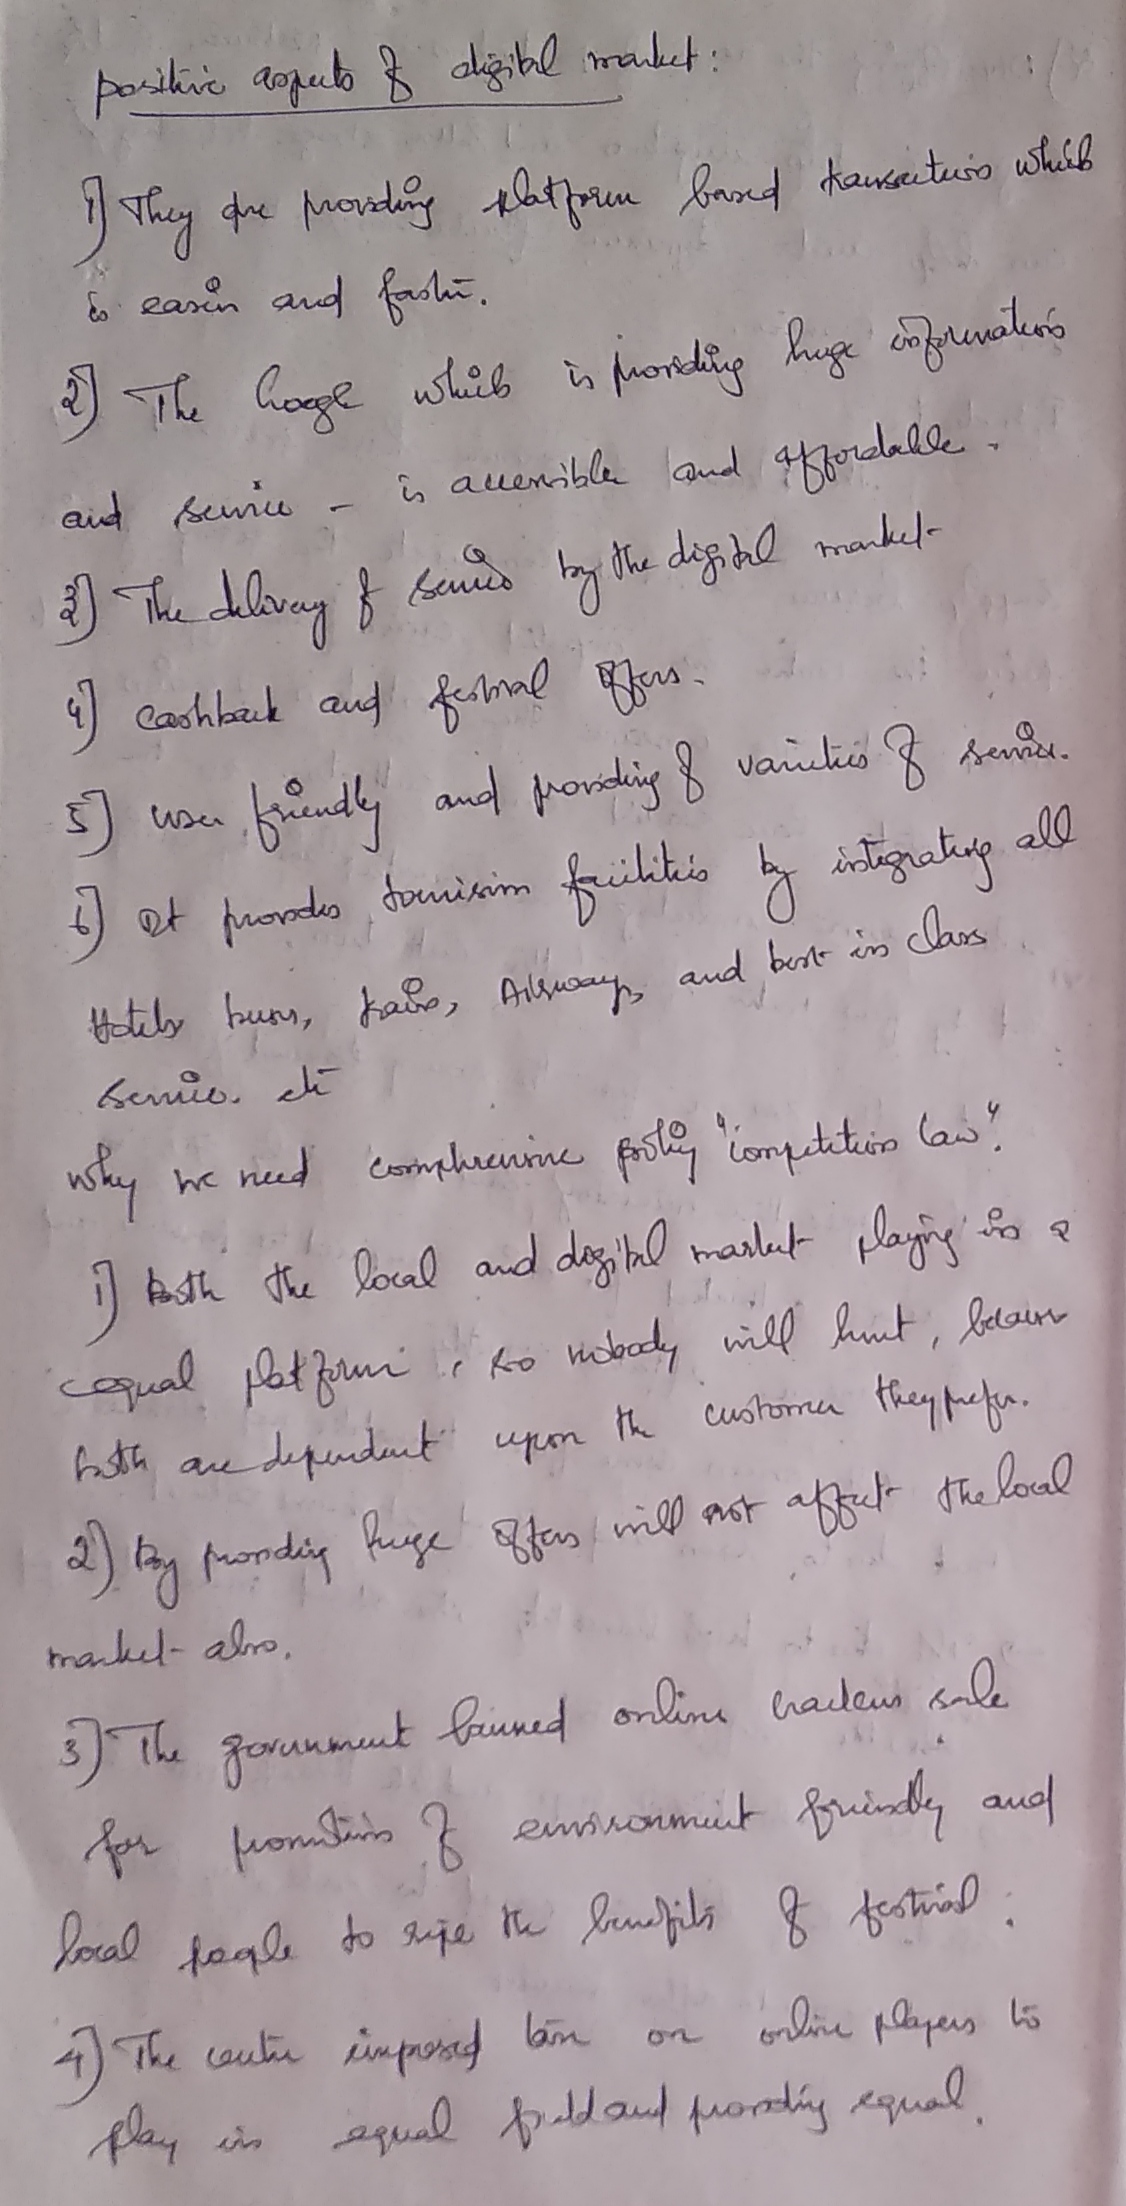 positive aspects of digital market:
1) They are providing platform based transactions which
is easier and faster.
2) The Google which is providing huge informations
and service - is accessible and affordable.
3) The delivery of service by the digital market
4) cashback and festival offers.
5) user friendly and providing of varieties of service.
6) It provides tourisim facilities by integrating all
Hotels buses, trains, Airways, and best in class
service. etc
Why we need comphrensive policy "competition law".
1) Both the local and digital market playing in a
equal platform, so nobody will hurt, because
both are dependent upon the customer they prefer.
2) By providing huge offers will not affect the local
market also.
3) The government banned online crackers sale
for promotion of environment friendly and
local people to ripe the benefits of festival.
4) The center imposed on online players to
play in equal field and providing equal.